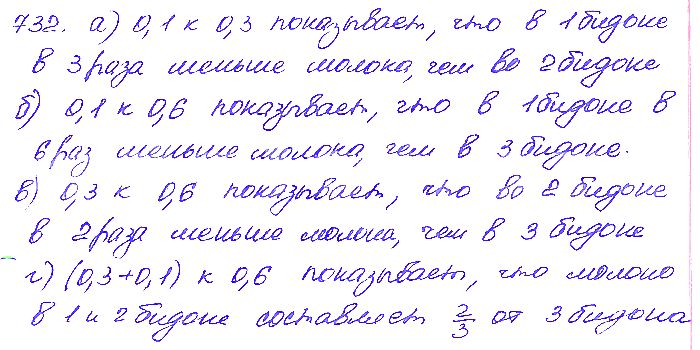 732. а) 0,1 к 0,3 показывает, что в 1 бидоне
в 3 раза меньше молока, чем во 2 бидоне
б) 0,1 к 0,6 показывает, что в 1 бидоне в
6 раз меньше молока, чем в 3 бидоне.
в) 0,3 к 0,6 показывает, что во 2 бидоне
в 2 раза меньше молока, чем в 3 бидоне
г) (0,3+0,1) к 0,6 показывает, что молоко
в 1 и 2 бидоне составляет 2/3 от 3 бидона